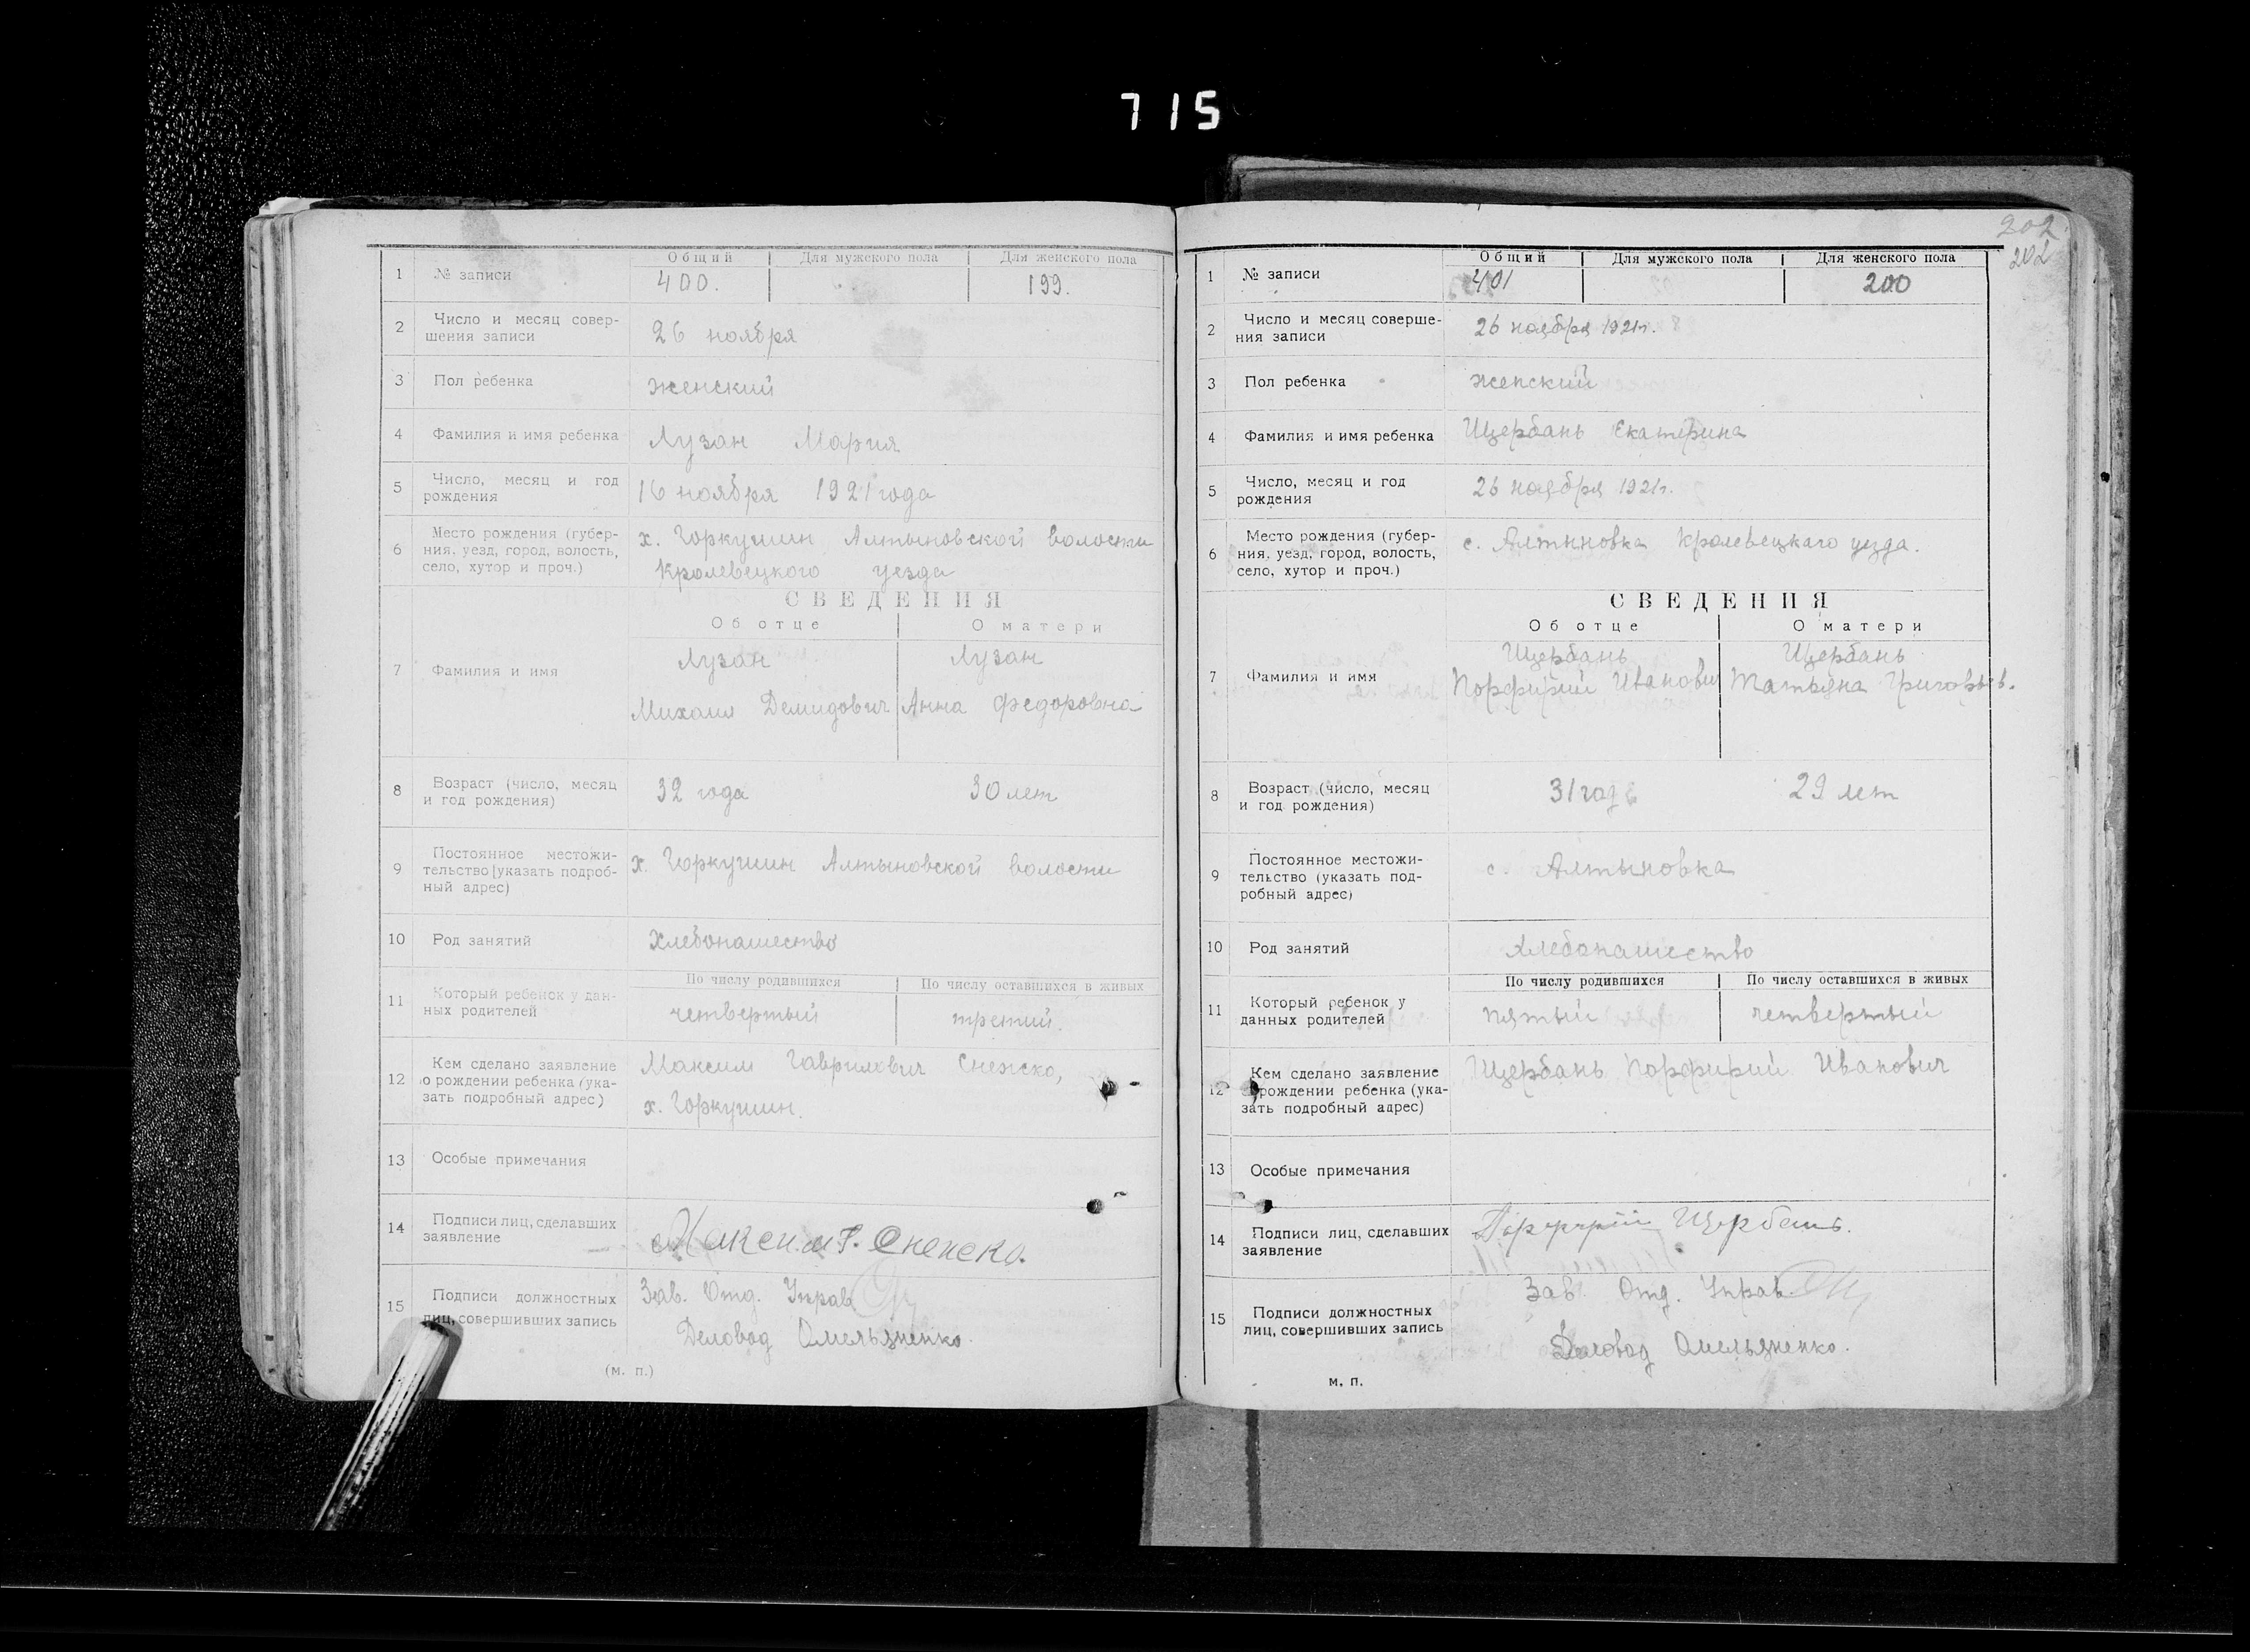 715
Общий Для мужского пола Для женского пола
1 № записи 400. 199.
2 Число и месяц совер-
шения записи
26 ноября
3 Пол ребенка женский
4 Фамилия и имя ребенка Лузан Мария
5 Число, месяц и год
рождения
16 ноября 1921 года
6 Место рождения (губер-
ния, уезд, город, волость,
село, хутор и проч.)
х. Горкушин Алтыновской волости
Кролевецкого уезда
СВЕДЕНИЯ
Об отце О матери
7 Фамилия и имя
Лузан Лузан
Михаил Демидович Анна Федоровна
8 Возраст (число, месяц
и год рождения)
32 года 30 лет
9 Постоянное местожи-
тельство [указать подроб-
ный адрес)
х. Горкушин Алтыновской волости
10 Род занятий Хлебопашество
По числу родившихся По числу оставшихся в живых
11 Который ребенок у дан-
ных родителей
четвертый третий.
12 Кем сделано заявление
о рождении ребенка (ука-
зать подробный адрес)
Максим Гаврилович
х. Горкушин.
13 Особые примечания
14 Подписи лиц, сделавших
заявление
15 Подписи должностных
лиц, совершивших запись
Зав. Отд. Управ
Деловод Омельяненко.
(м. п.)
202
202
Общий Для мужского пола Для женского пола
1 № записи 401 200
2 Число и месяц соверше-
ния записи
26 ноября 1921 г.
3 Пол ребенка женский
4 Фамилия и имя ребенка Щербань Екатерина
5 Число, месяц и год
рождения
26 ноября 1921 г.
6 Место рождения (губер-
ния, уезд, город, волость,
село, хутор и проч.)
с. Алтыновка Кролевецкаго уезда.
СВЕДЕНИЯ
Об отце О матери
7 Фамилия и имя
Щербань Щербань
Порфирий Иванович Татьяна Григорьев.
8 Возраст (число, месяц
и год рождения)
31 год 29 лет
9 Постоянное местожи-
тельство (указать под-
робный адрес)
с. Алтыновка
10 Род занятий хлебопашество
По числу родившихся По числу оставшихся в живых
11 Который ребенок у
данных родителей
пятый четвертый
12 Кем сделано заявление
о рождении ребенка (ука-
зать подробный адрес)
Щербань Порфирий Иванович
13 Особые примечания
14 Подписи лиц, сделавших
заявление
Порфирий Щербань.
15 Подписи должностных
лиц, совершивших запись
Зав. Отд. Управ.
Деловод Омельяненко.
м. п.